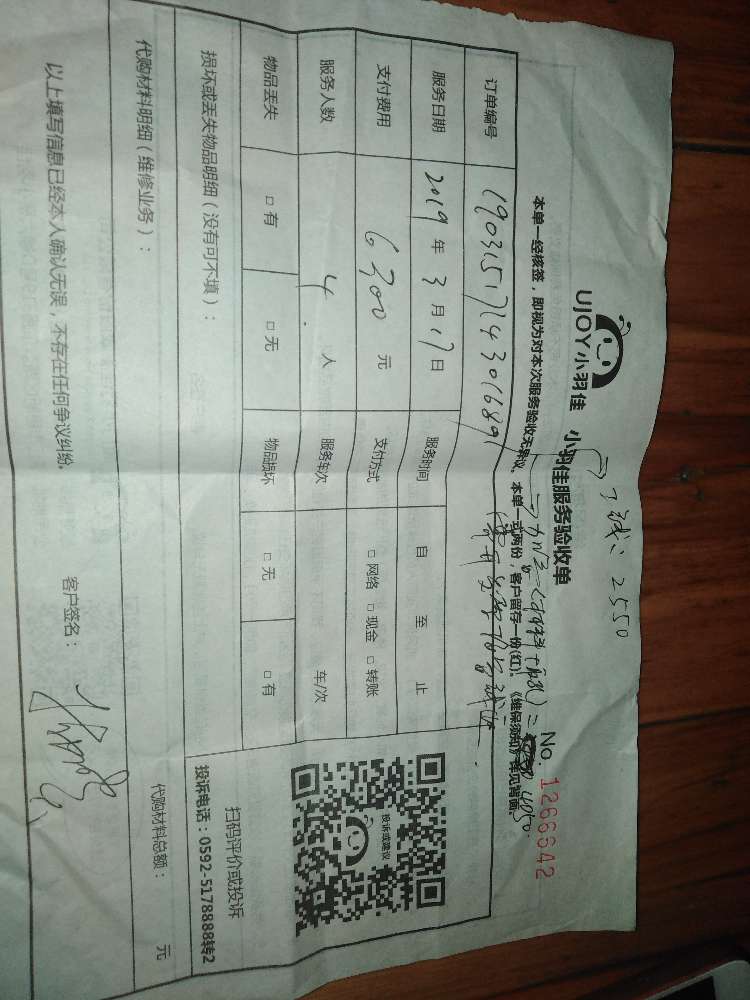 UJOY小羽佳 小羽佳服务验收单
No. 1266642
本单一经核签，即视为对本次服务验收无异议，本单一式两份，客户留存一份(红)。《维保须知》详见背面。
2550
订单编号
服务日期 2019 年 3 月 17 日 服务时间 自 至 止
支付费用 6300 元 支付方式 □ 网络 □ 现金 □ 转账
服务人数 4 人 服务车次 车/次
物品丢失 □ 有 □ 无 物品损坏 □ 无 □ 有
投诉或建议
扫码评价或投诉
投诉电话：0592-5178888转2
损坏或丢失物品明细（没有可不填）：
代购材料明细（维修业务）： 代购材料总额： 元
以上填写信息已经本人确认无误，不存在任何争议纠纷。 客户签名：